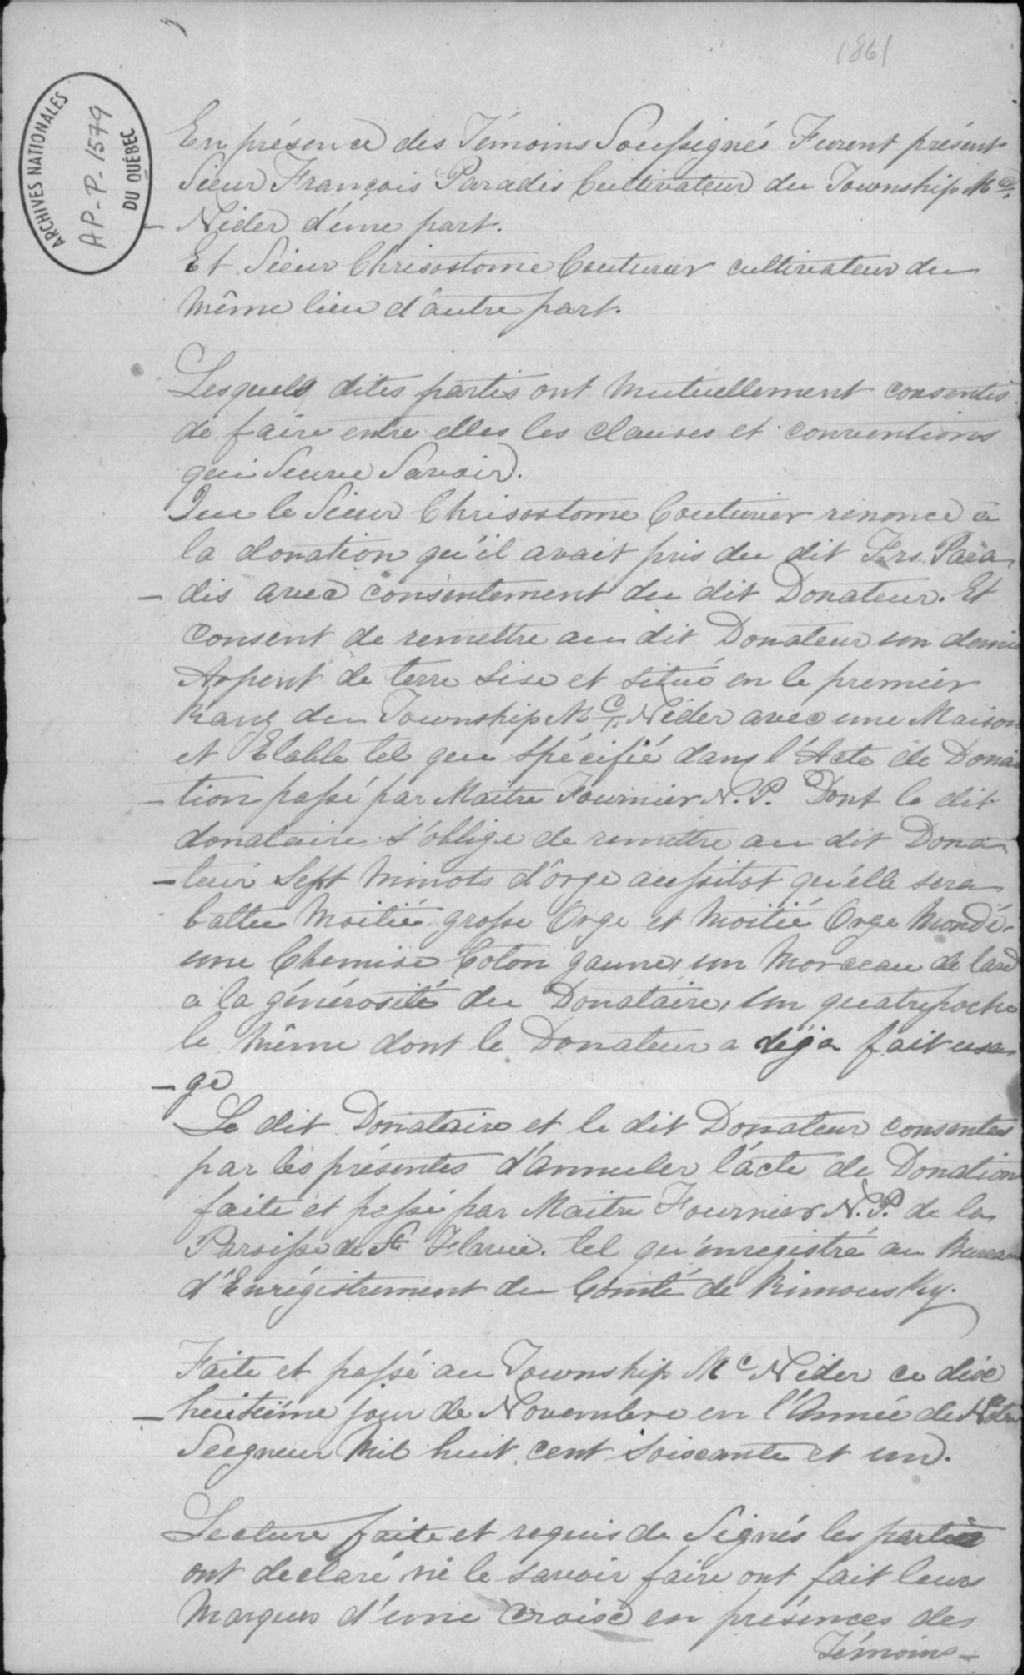 1861
ARCHIVES NATIONALES
AP-P. 1579
DU QUÉBEC
En présence des Témoins Soussignés Furent présent
Sieur François Paradis Cultivateur du Township Mc
Nider d'une part.
Et Sieur Chrisostome Couturier cultivateur du
même lieu d'autre part.
Lesquels dites partis ont mutuellement consentis
de faire entre elles les clauses et conventions
qui Seuve Savoir.
Que le Sieur Chrisostome Couturier renonce à
la donation qu'il avait pris du dit Frs. Para
- dis avec consentement du dit Donateur. Et
consent de remettre au dit Donateur un demie
Arpent de terre sise et situé en le premier
Rang du Township Mc Nider avec une Maison
et Etable tel que Spécifié dans l'Acte de Dona
- tion passé par Maitre Fournier N.P. Dont le dit
donataire s'oblige de remettre au dit Dona
- teur Sept Minots d'orge aussitot qu'elle sera
battu Moitié grosse Orge et Moitié Orge Mondé.
une Chemise Coton jaune, un Morceau de lard
a la générosité du Donataire, un quatrepoche
le Même dont le Donateur a déja fait usa
- ge
Le dit Donataire et le dit Donateur consentes
par les présentes d'annuler l'acte de Donation
faite et passé par Maitre Fournier N.P. de la
Paroisse de Ste Flavie. tel qu'enregistré au Bureau
d'Enrégistrement du Comté de Rimousky.
Faite et passé au Township Mc Nider ce dixe
- huitième jour de Novembre en l'Année de Notre
Seigneur Mil huit cent soixante et un.
Lecture faite et requis de Signés les parties
ont declaré ne le savoir faire ont fait leurs
Marques d'une Croise en présences des
Témoins -